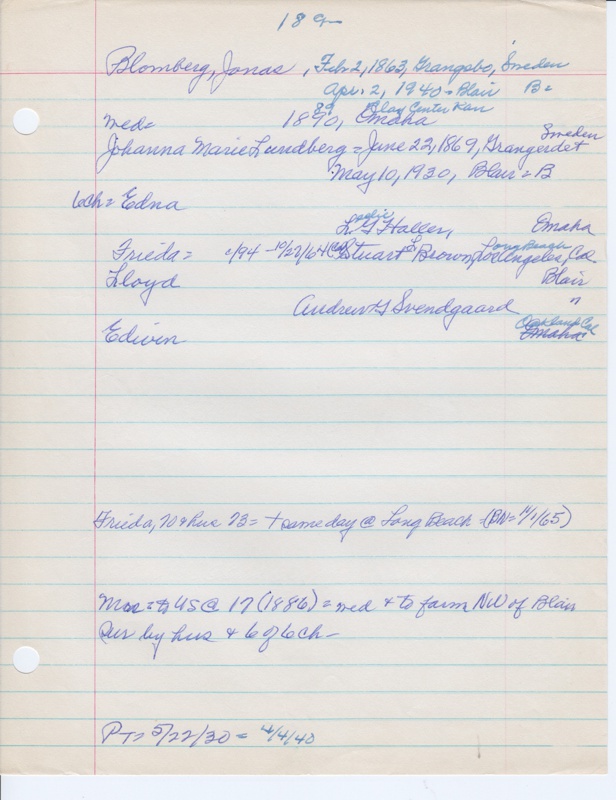 189-
Blomberg, Jonas, Feb 2, 1863, Grangsbo, Sweden
Apr. 2, 1940 - Blair B=
89 Clay Center Kan
med= 1890, Omaha
Sweden
Johanna Marie Lundberg = June 22, 1869, Grangerdet
May 10, 1930, Blair = B
6ch= Edna
L. G Haller, Omaha
Long Beach
Frieda= /94 - 10/22/64 Stuart L Brown, Los Angeles, Cal
Lloyd Blair
Andrew G Svendgaard "
Oakland Cal
Edwin Omaha
Frieda, 70 & hus 73 = + same day @ Long Beach = (BN= 4/1/65)
Mrs = to US @ 17 (1886) = med & to farm NW of Blair
Sur by hus & 6 of 6 ch-
PT= 5/22/30 = 4/4/40